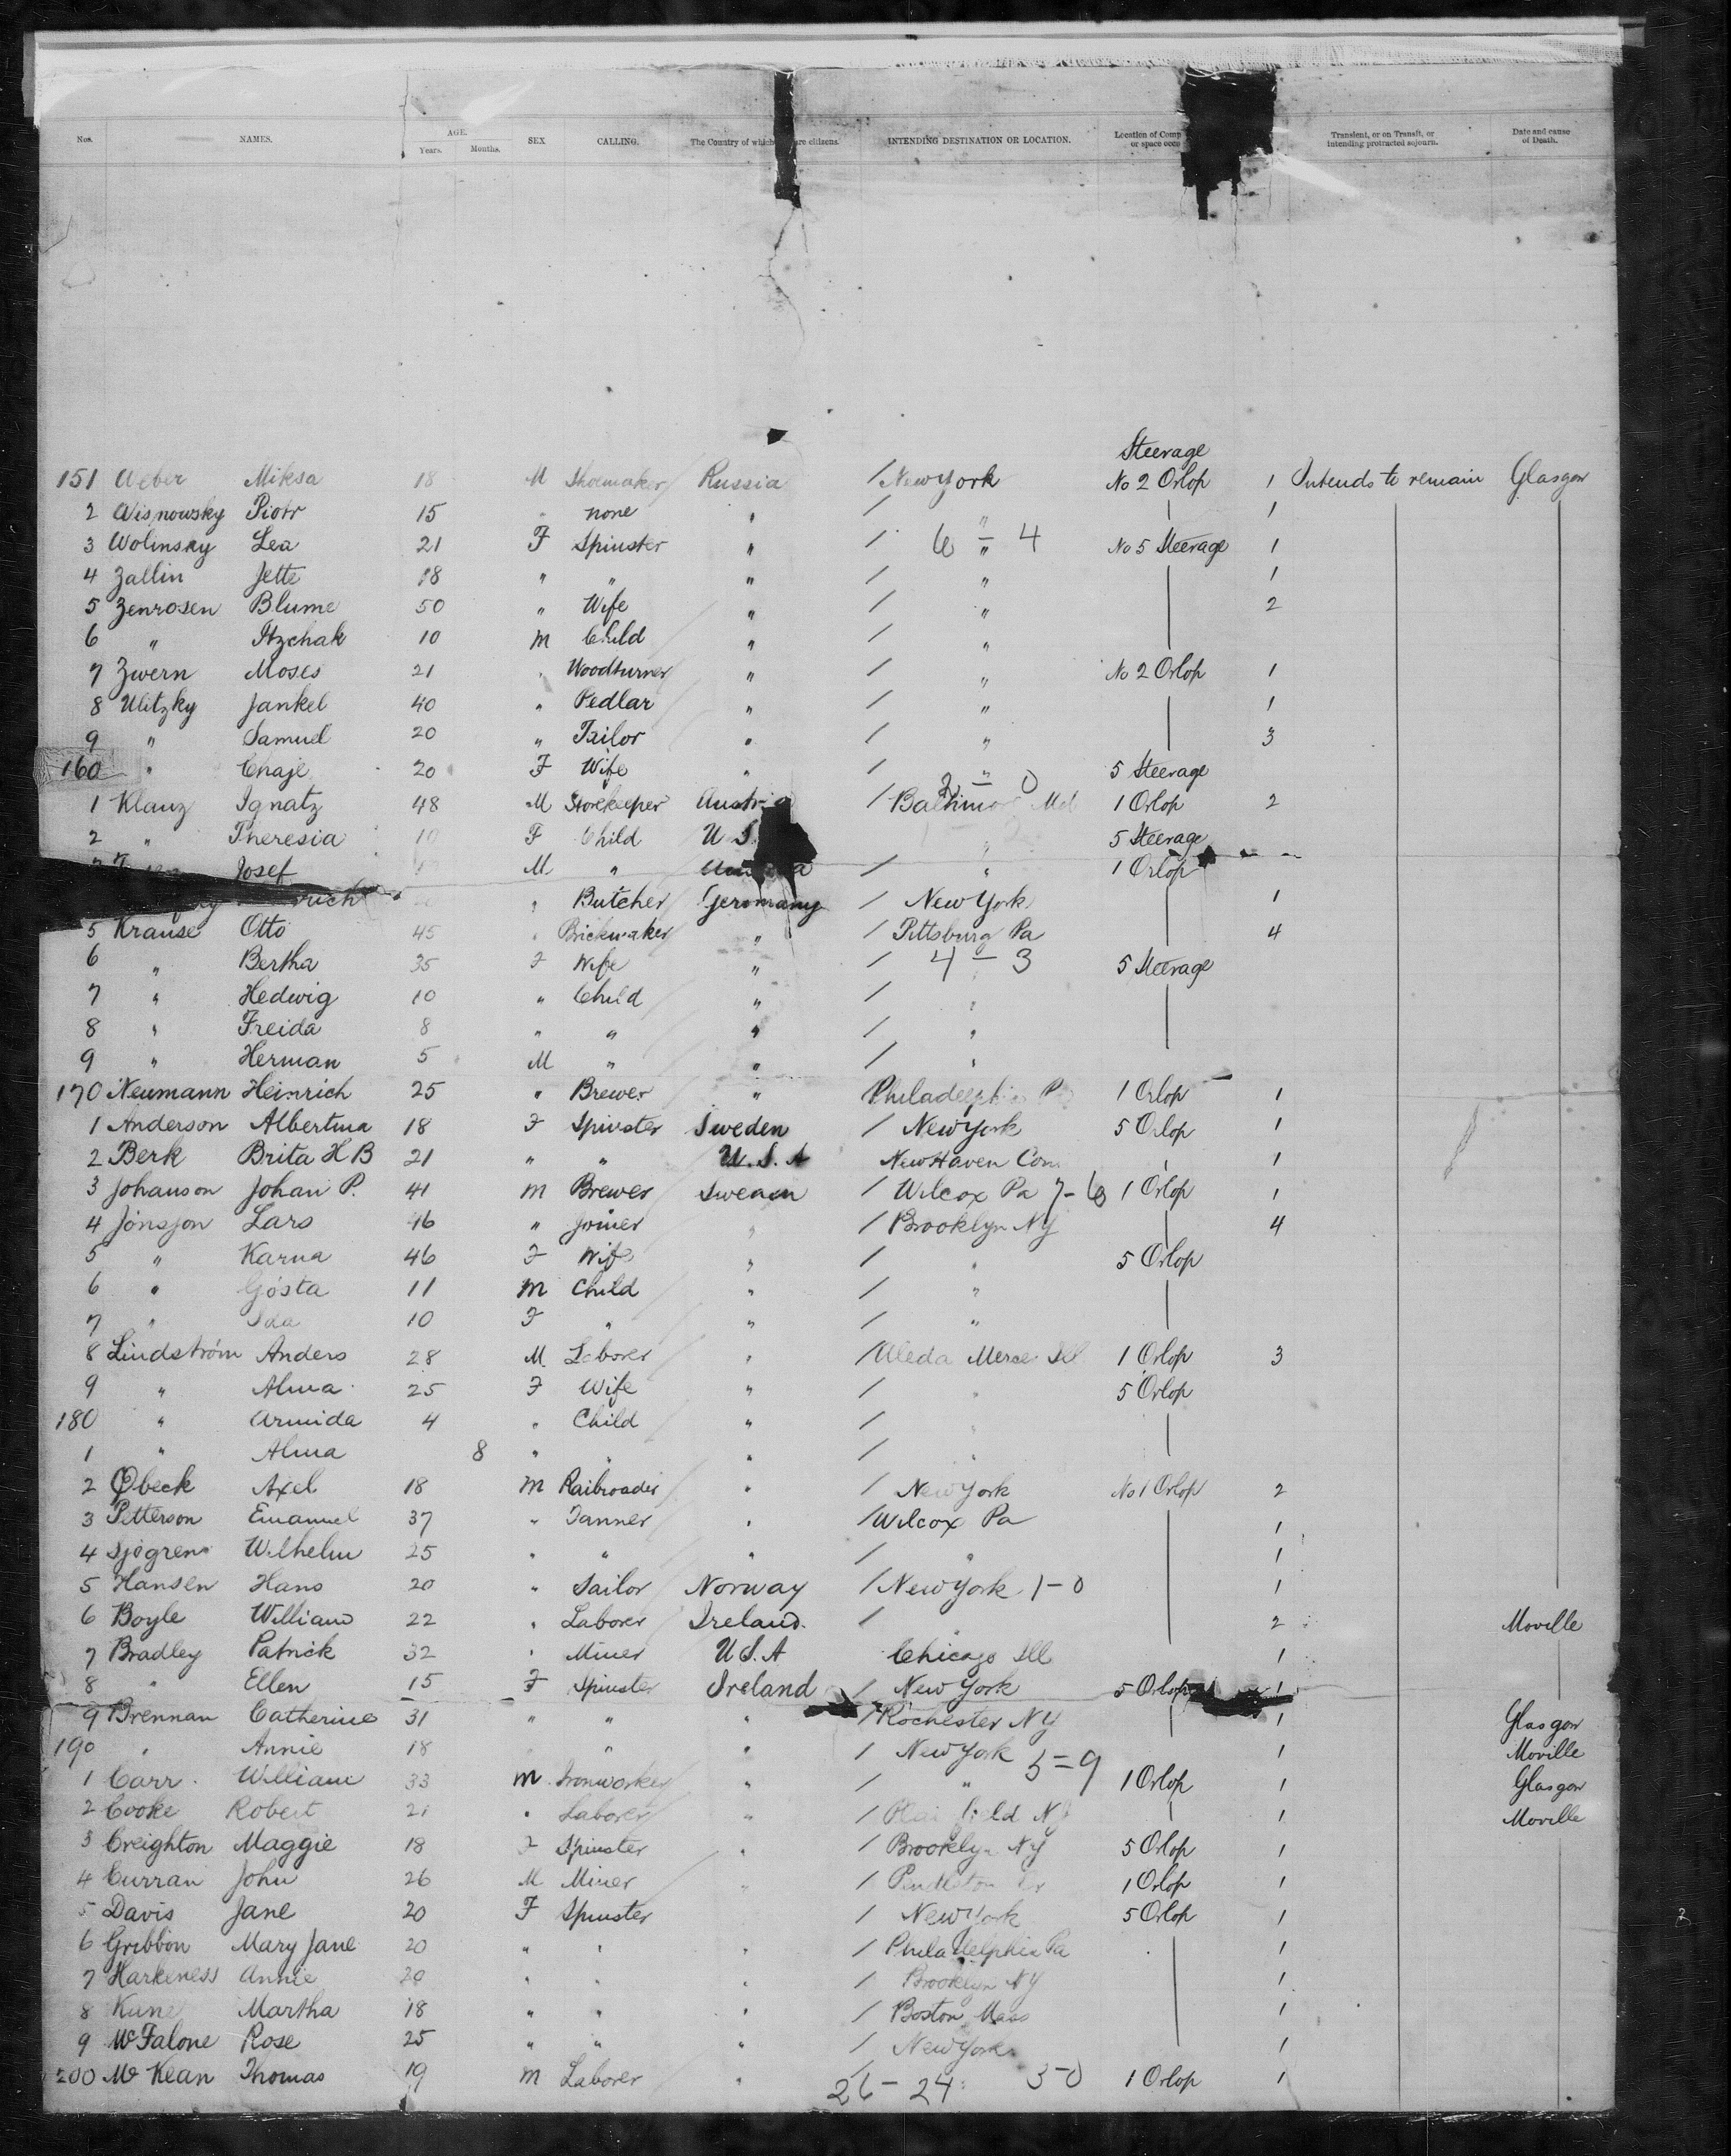 Nos. NAMES. AGE. Years. Months. SEX CALLING. The Country of which are citizens. INTENDING DESTINATION OR LOCATION. Location of Comp or space occu Transient, or on Transit, or intending protracted sojourn. Date and cause of Death.
Steerage
151 Weber Miksa 18 M Shoemaker Russia / New York No 2 Orlop 1 Intends to remain Glasgow
2 Wisnowsky Piotr 15 " none " / " 1
3 Wolinsky Lea 21 F Spinster " / 6 " - 4 No 5 Steerage 1
4 Zallin Jette 18 " " " / " 1
5 Zenrosen Blume 50 " Wife " / " 2
6 " Itzchak 10 m Child " / "
7 Zwern Moses 21 " Woodturner " / " No 2 Orlop 1
8 Ulitzky Jankel 40 " Pedlar " / " 1
9 " Samuel 20 " Tailor " / " 3
160 " Chaje 20 F Wife " / " 5 Steerage
2 - 0
1 Klanz Ignatz 48 M Storekeeper Austria / Baltimore Md 1 Orlop 2
2 " Theresia 10 F Child U S. " 5 Steerage
Josef M " / " 1 Orlop
rich " Butcher Germany / New York 1
5 Krause Otto 45 " Brickmaker " / Pittsburg Pa 4
6 " Bertha 35 F Wife " / 4 - 3 5 Steerage
7 " Hedwig 10 " Child " / "
8 " Freida 8 " " " / "
9 " Herman 5 M " " / "
170 Neumann Heinrich 25 " Brewer " Philadelphia Pa 1 Orlop 1
1 Anderson Albertina 18 F Spinster Sweden / New York 5 Orlop 1
2 Berk Brita H B 21 " " U. S. A New Haven Con 1
3 Johanson Johan P. 41 m Brewer Sweden / Wilcox Pa 7 - 6 1 Orlop 1
4 Jönsson Lars 46 " Joiner " / Brooklyn NY 4
5 " Karna 46 F Wife " / " 5 Orlop
6 " Gösta 11 m Child " / "
7 " Ida 10 F " " / "
8 Lindström Anders 28 M Laborer " / Aleda Merce Ill 1 Orlop 3
9 " Alma 25 F Wife " / " 5 Orlop
180 " Armida 4 " Child " /
1 " Alma 8 " " " / "
2 Obeck Axel 18 m Railroader " / New York No 1 Orlop 2
3 Petterson Emanuel 37 " Tanner " / Wilcox Pa 1
4 Sjögren Wilhelm 25 " " " / " 1
5 Hansen Hans 20 " Sailor Norway / New York 1 - 0 1
6 Boyle William 22 " Laborer Ireland / " 2 Moville
7 Bradley Patrick 32 " Miner U S. A Chicago Ill 1
8 " Ellen 15 F Spinster Ireland / New York 5 Orlop 1
9 Brennan Catherine 31 " " " / Rochester NY 1 Glasgow
190 " Annie 18 " " " / New York 1 Moville
1 Carr William 33 m Ironworker " / " 5 - 9 1 Orlop 1 Glasgow
2 Cooke Robert 21 " Laborer " / Plainfield NJ 1 Moville
3 Creighton Maggie 18 F Spinster " / Brooklyn NY 5 Orlop 1
4 Curran John 26 M Miner " / Pendleton 1 Orlop 1
5 Davis Jane 20 F Spinster / New York 5 Orlop 1
6 Gribbon Mary Jane 20 " " " / Philadelphia Pa 1
7 Harkeness Annie 20 " " " / Brooklyn NY 1
8 Kune Martha 18 " " " / Boston Mass 1
9 McFalone Rose 25 " " " / New York 1
200 McKean Thomas 19 m Laborer " 3 - 0 1 Orlop 1
26 - 24